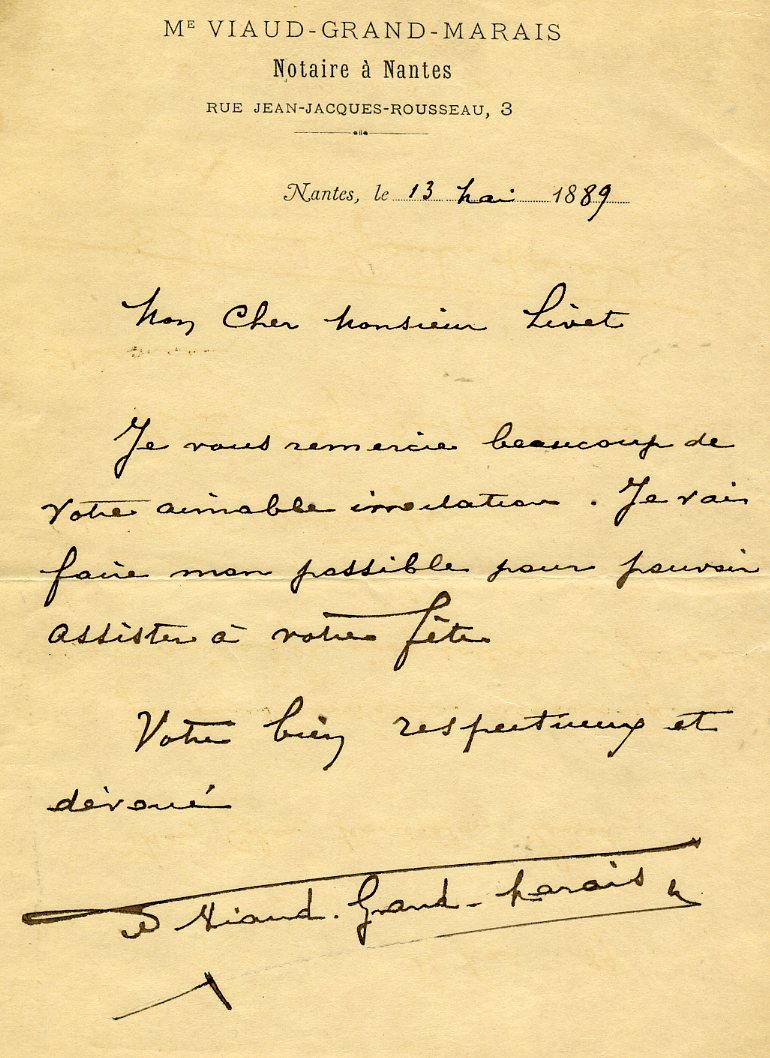 Mᴱ VIAUD-GRAND-MARAIS
Notaire à Nantes
RUE JEAN-JACQUES-ROUSSEAU, 3
Nantes, le 13 Mai 1889
Mon Cher Monsieur Livet
Je vous remercie beaucoup de
votre aimable invitation. Je vais
faire mon possible pour pouvoir
assister à votre fête
Votre bien respectueux et
dévoué
Viaud-Grand-Marais